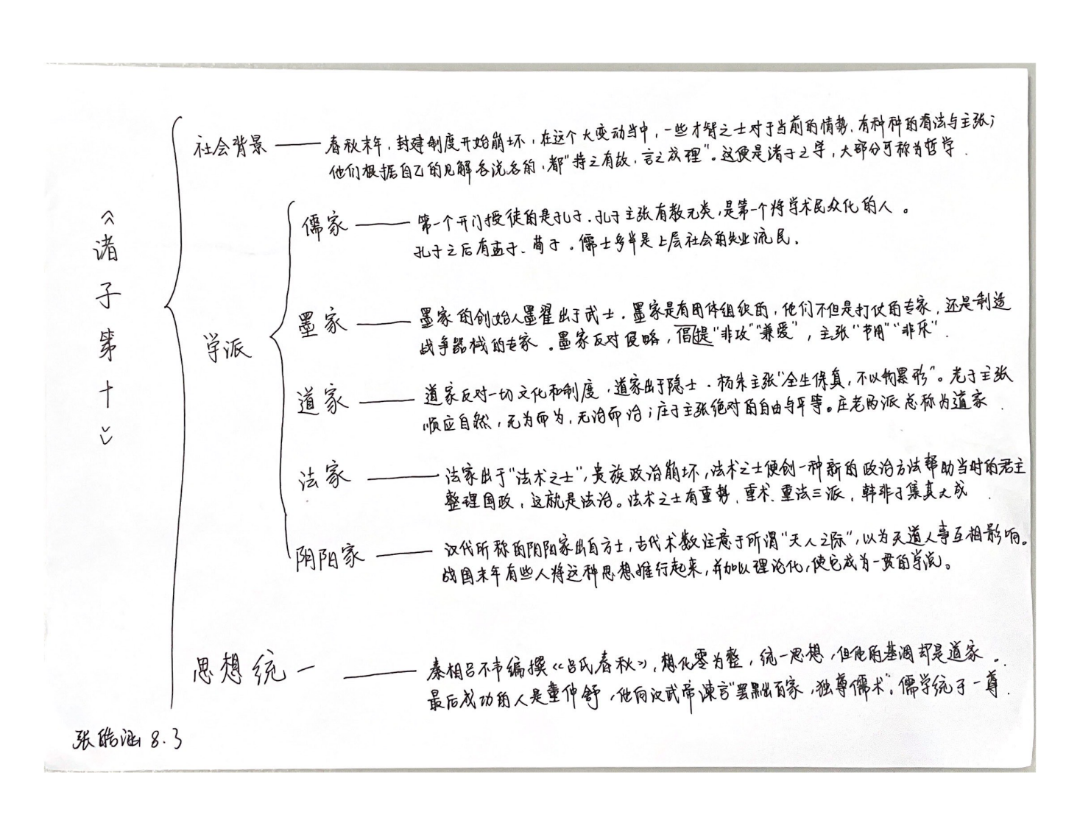 《诸子第十》
社会背景
春秋末年，封建制度开始崩坏，在这个大变动当中，一些才智之士对于当前的情势，有种种的看法与主张；
他们根据自己的见解各说各的，都"持之有故，言之成理"。这便是诸子之学，大部分可称为哲学.
学派
儒家
第一个开门授徒的是孔子.孔子主张有教无类，是第一个将学术民众化的人。
孔子之后有孟子、荀子。儒士多半是上层社会的失业流民.
墨家
墨家的创始人墨翟出于武士.墨家是有团体组织的，他们不但是打仗的专家，还是制造
战争器械的专家.墨家反对侵略，倡提"非攻""兼爱"，主张"节用""非乐".
道家
道家反对一切文化和制度，道家出于隐士.杨朱主张"全生保真，不以物累形"。老子主张
顺应自然，无为而为，无治而治；庄子主张绝对的自由与平等。庄老两派总称为道家.
法家
法家出于"法术之士"，贵族政治崩坏，法术之士便创一种新的政治方法帮助当时的君主
整理国政，这就是法治。法术之士有重势、重术、重法三派，韩非子集其大成
阴阳家
汉代所称的阴阳家出自方士，古代术数注意于所谓"天人之际"，以为天道人事互相影响。
战国末年有些人将这种思想推行起来，并加以理论化，使它成为一贯的学说。
思想统一
秦相吕不韦编撰《吕氏春秋》，想化零为整，统一思想，但他的基调却是道家.
最后成功的人是董仲舒，他向汉武帝谏言"罢黜百家，独尊儒术"，儒学统于一尊.
张皓涵 8.3